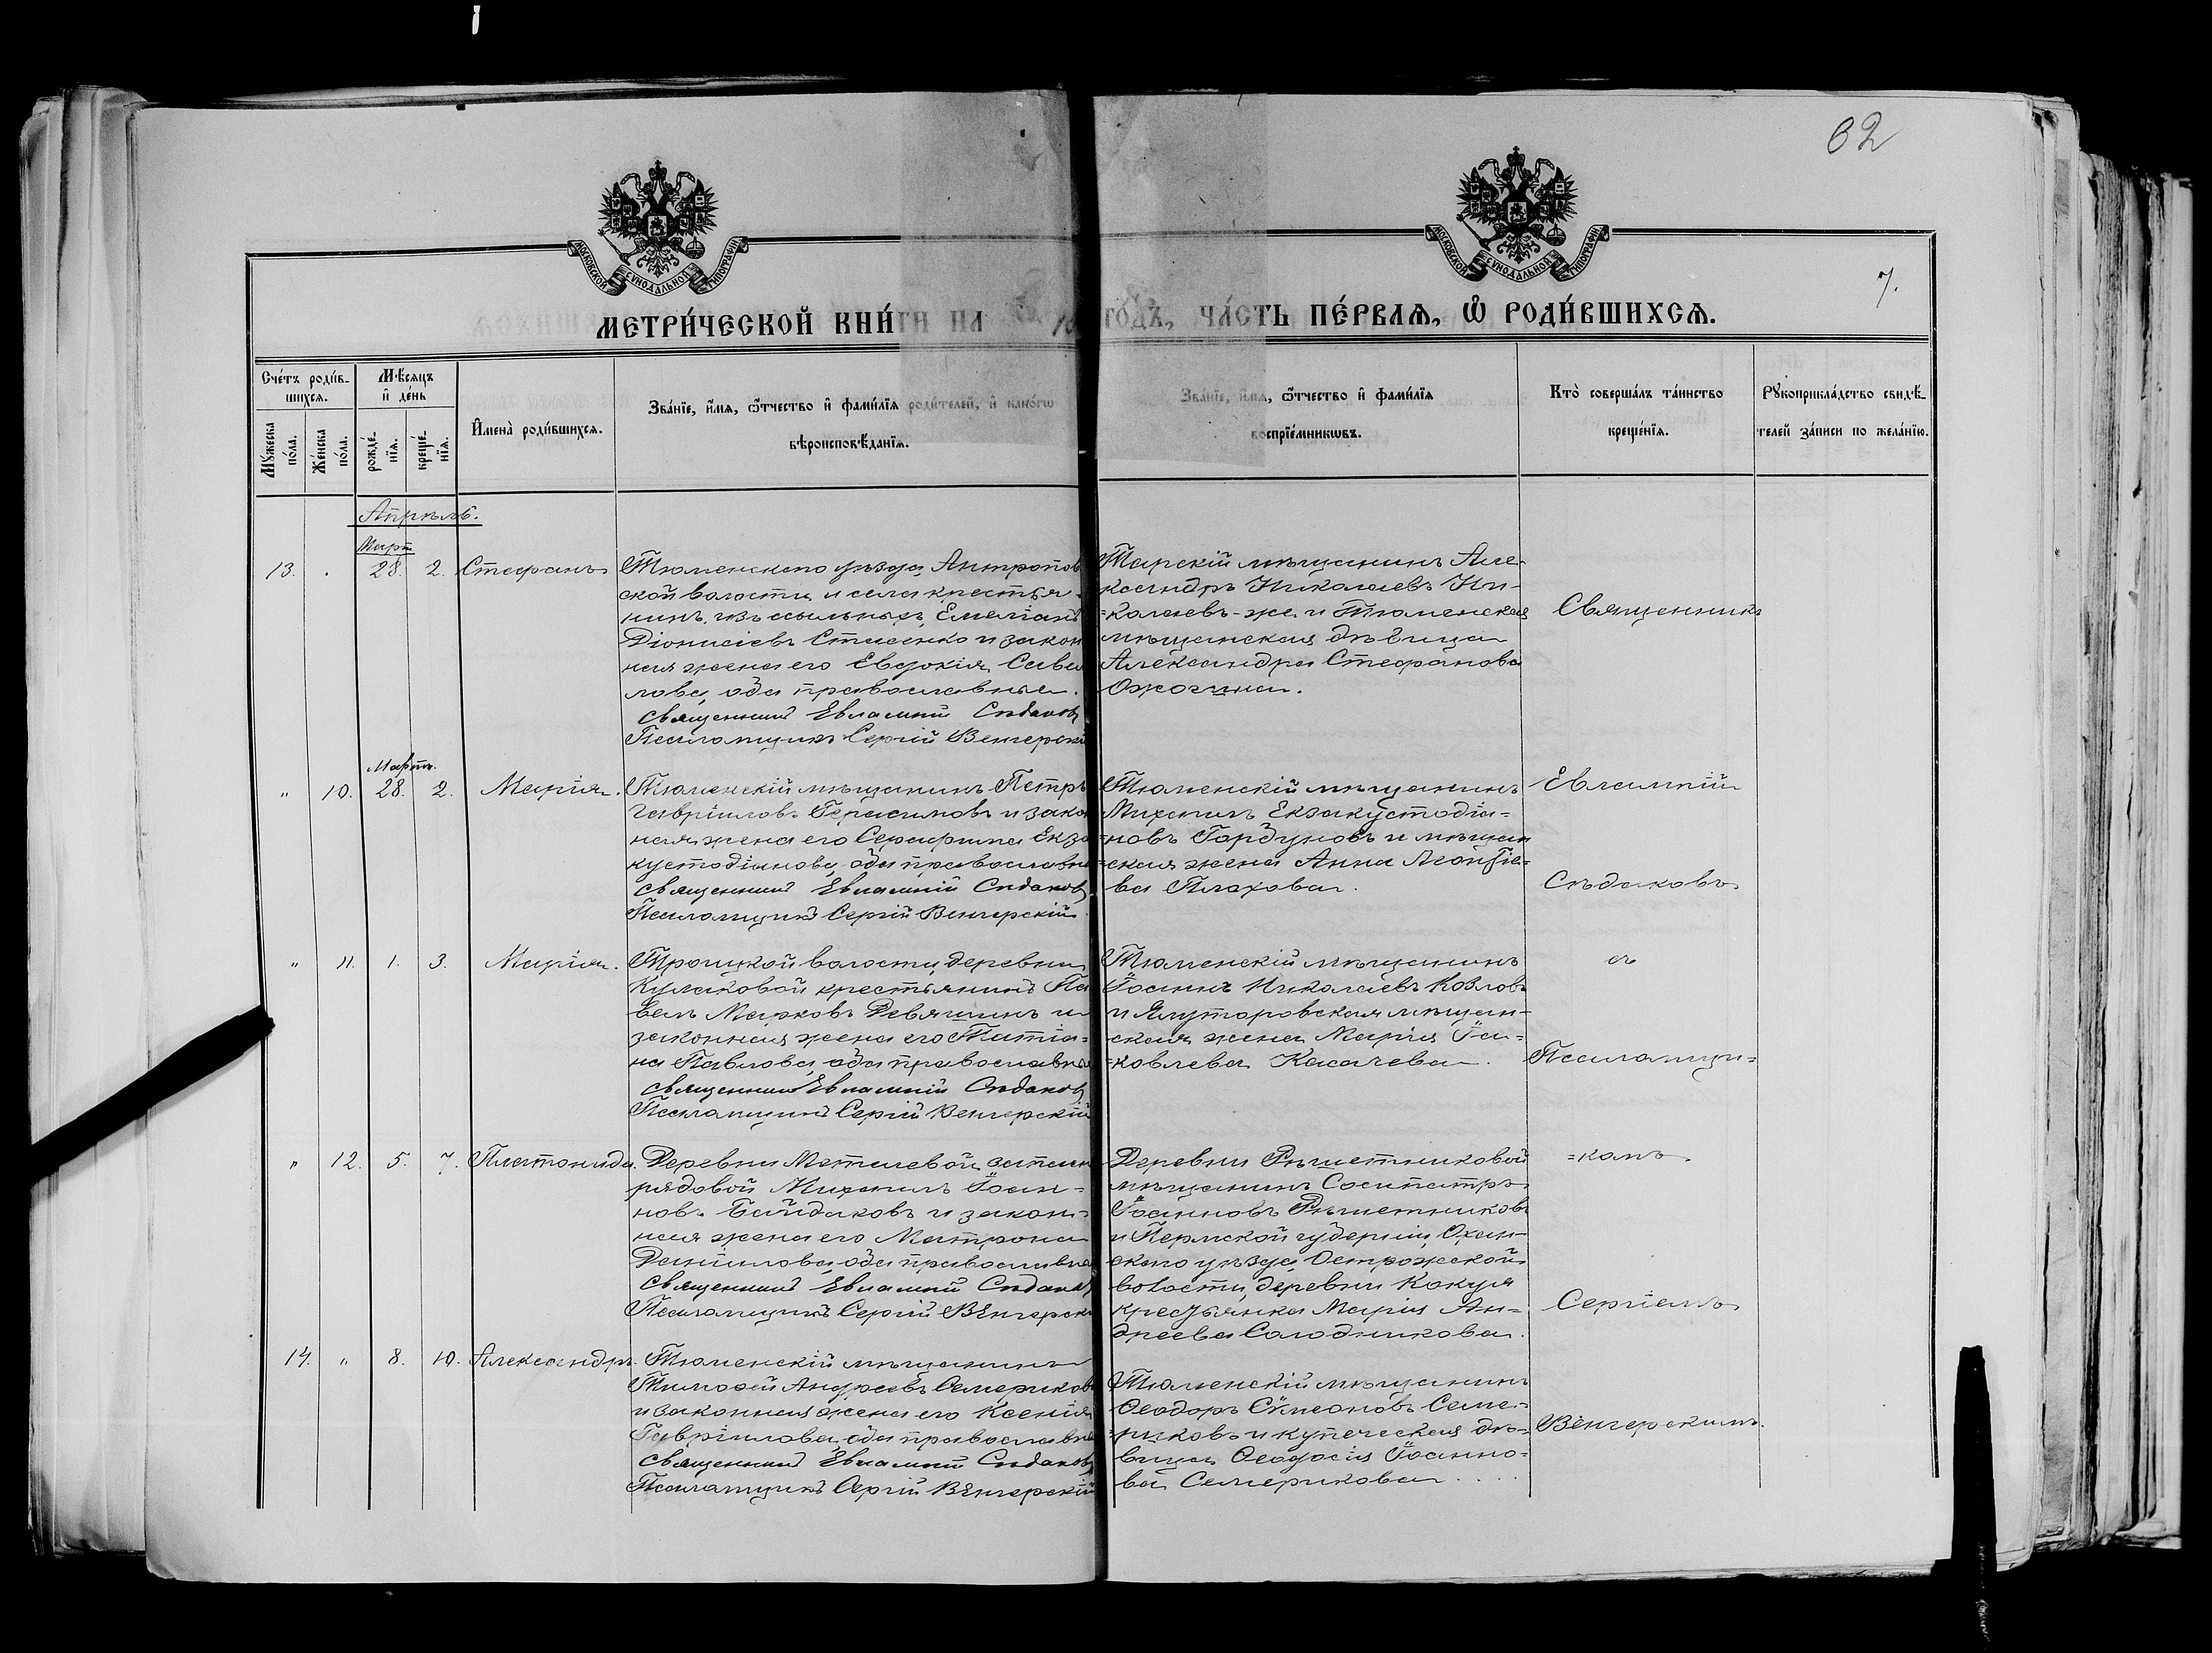 62
МОСКОВСКОЙ СѴНОДАЛЬНОЙ ТИПОГРАФІИ
МОСКОВСКОЙ СѴНОДАЛЬНОЙ ТИПОГРАФІИ
7.
МЕТРИ́ЧЕСКОЙ КНИ́ГИ НА
ГО́ДЪ, ЧА́СТЬ ПЕ́РВАѦ, Ѡ҆ РОДИ́ВШИХСѦ.
Сче́тъ роди́в-
шихсѧ.
Мꙋ́жеска
по́ла.
Же́нска
по́ла.
Мѣ́сѧцъ
и҆ де́нь
рожде́-
нїѧ.
креще́-
нїѧ.
И҆мена̀ роди́вшихсѧ.
Зва́нїе, и҆́мѧ, ѻ҆́тчество и҆ фами́лїѧ роди́телей, и҆ како́гѡ
вѣроисповѣ́данїѧ.
Зва́нїе, и҆́мѧ, ѻ҆́тчество и҆ фами́лїѧ
воспрїе́мникѡвъ.
Кто̀ соверша́лъ та́инство
креще́нїѧ.
Рꙋкоприкла́дство свидѣ́-
телей за́писи по жела́нїю.
Апрѣль.
Март
13. 28. 2. Стефанъ
Тюменскаго уѣзда, Антропов
ской волости и села крестья-
нинъ изъ ссыльныхъ, Емеліанъ
Діонисіевъ Стасенко и закон
ная жена его Евдокія Сава
лова, оба православные.
Священникъ Евлампій Сѣдаковъ
Псаломщикъ Сергій Венгерскі
Тарскій мѣщанинъ Але-
ксандръ Николаевъ Ни-
=колаевъ-же и Тюменская
мѣщанская дѣвица
Александра Стефанова
Ожогина.
Священникъ
Мартъ.
" 10. 28. 2. Марія.
Тюменскій мѣщанинъ Петръ
Гавріиловъ Герасимовъ и зако
ная жена его Серафима Екза
кустодіанова, оба православн
Священникъ Евлампій Сѣдаковъ
Псаломщикъ Сергій Венгерскій
Тюменскій мѣщанинъ
Михаилъ Екзакустодіа-
=новъ Гордуновъ и мѣщан
=ская жена Анна Леонтіе-
ва Плахова.
Евлампій
Сѣдаковъ
" 11. 1. 3. Марія.
Троицкой волости, деревни
Кулаковой крестьянинъ Па
велъ Марковъ Девяшинъ и
законная жена его Татіа-
на Павлова, оба православны
Священникъ Евлампій Сѣдаковъ
Псаломщикъ Сергій Венгерскій
Тюменскій мѣщанинъ
Іоаннъ Николаевъ Козловъ
и Ялуторовская мѣщан-
ская жена Марія Іа-
=ковлева Касачева.
съ
Псаломщи=
" 12. 5. 7. Платонида.
Деревни Метелевой, запасн
рядовой Михаилъ Іоан-
новъ Байдаковъ и закон-
ная жена его Матрона
Даніилова, оба православн
Священникъ Евлампій Сѣдаковъ
Псаломщикъ Сергій Венгерскі
Деревни Рѣшетниковой
мѣщанинъ Сосипатръ
Іоанновъ Рѣшетниковъ
и Пермской губерніи, Охан-
скаго уѣзда, Острожской
волости, деревни Кокуя
крестьянка Марія Ан-
дреева Солодникова.
=комъ.
Сергіемъ
14. " 8. 10. Александръ.
Тюменскій мѣщанинъ
Тимоѳей Андреевъ Семериковъ
и законная жена его Ксенія
Гавріилова, оба православн
Священникъ Евлампій Сѣдаковъ
Псаломщикъ Сергій Венгерскій
Тюменскій мѣщанинъ
Ѳеодоръ Сѵмеоновъ Семе-
=риковъ и купеческая дѣ-
вица Ѳеодосія Іоанно-
ва Семерикова . . . .
Венгерскимъ.